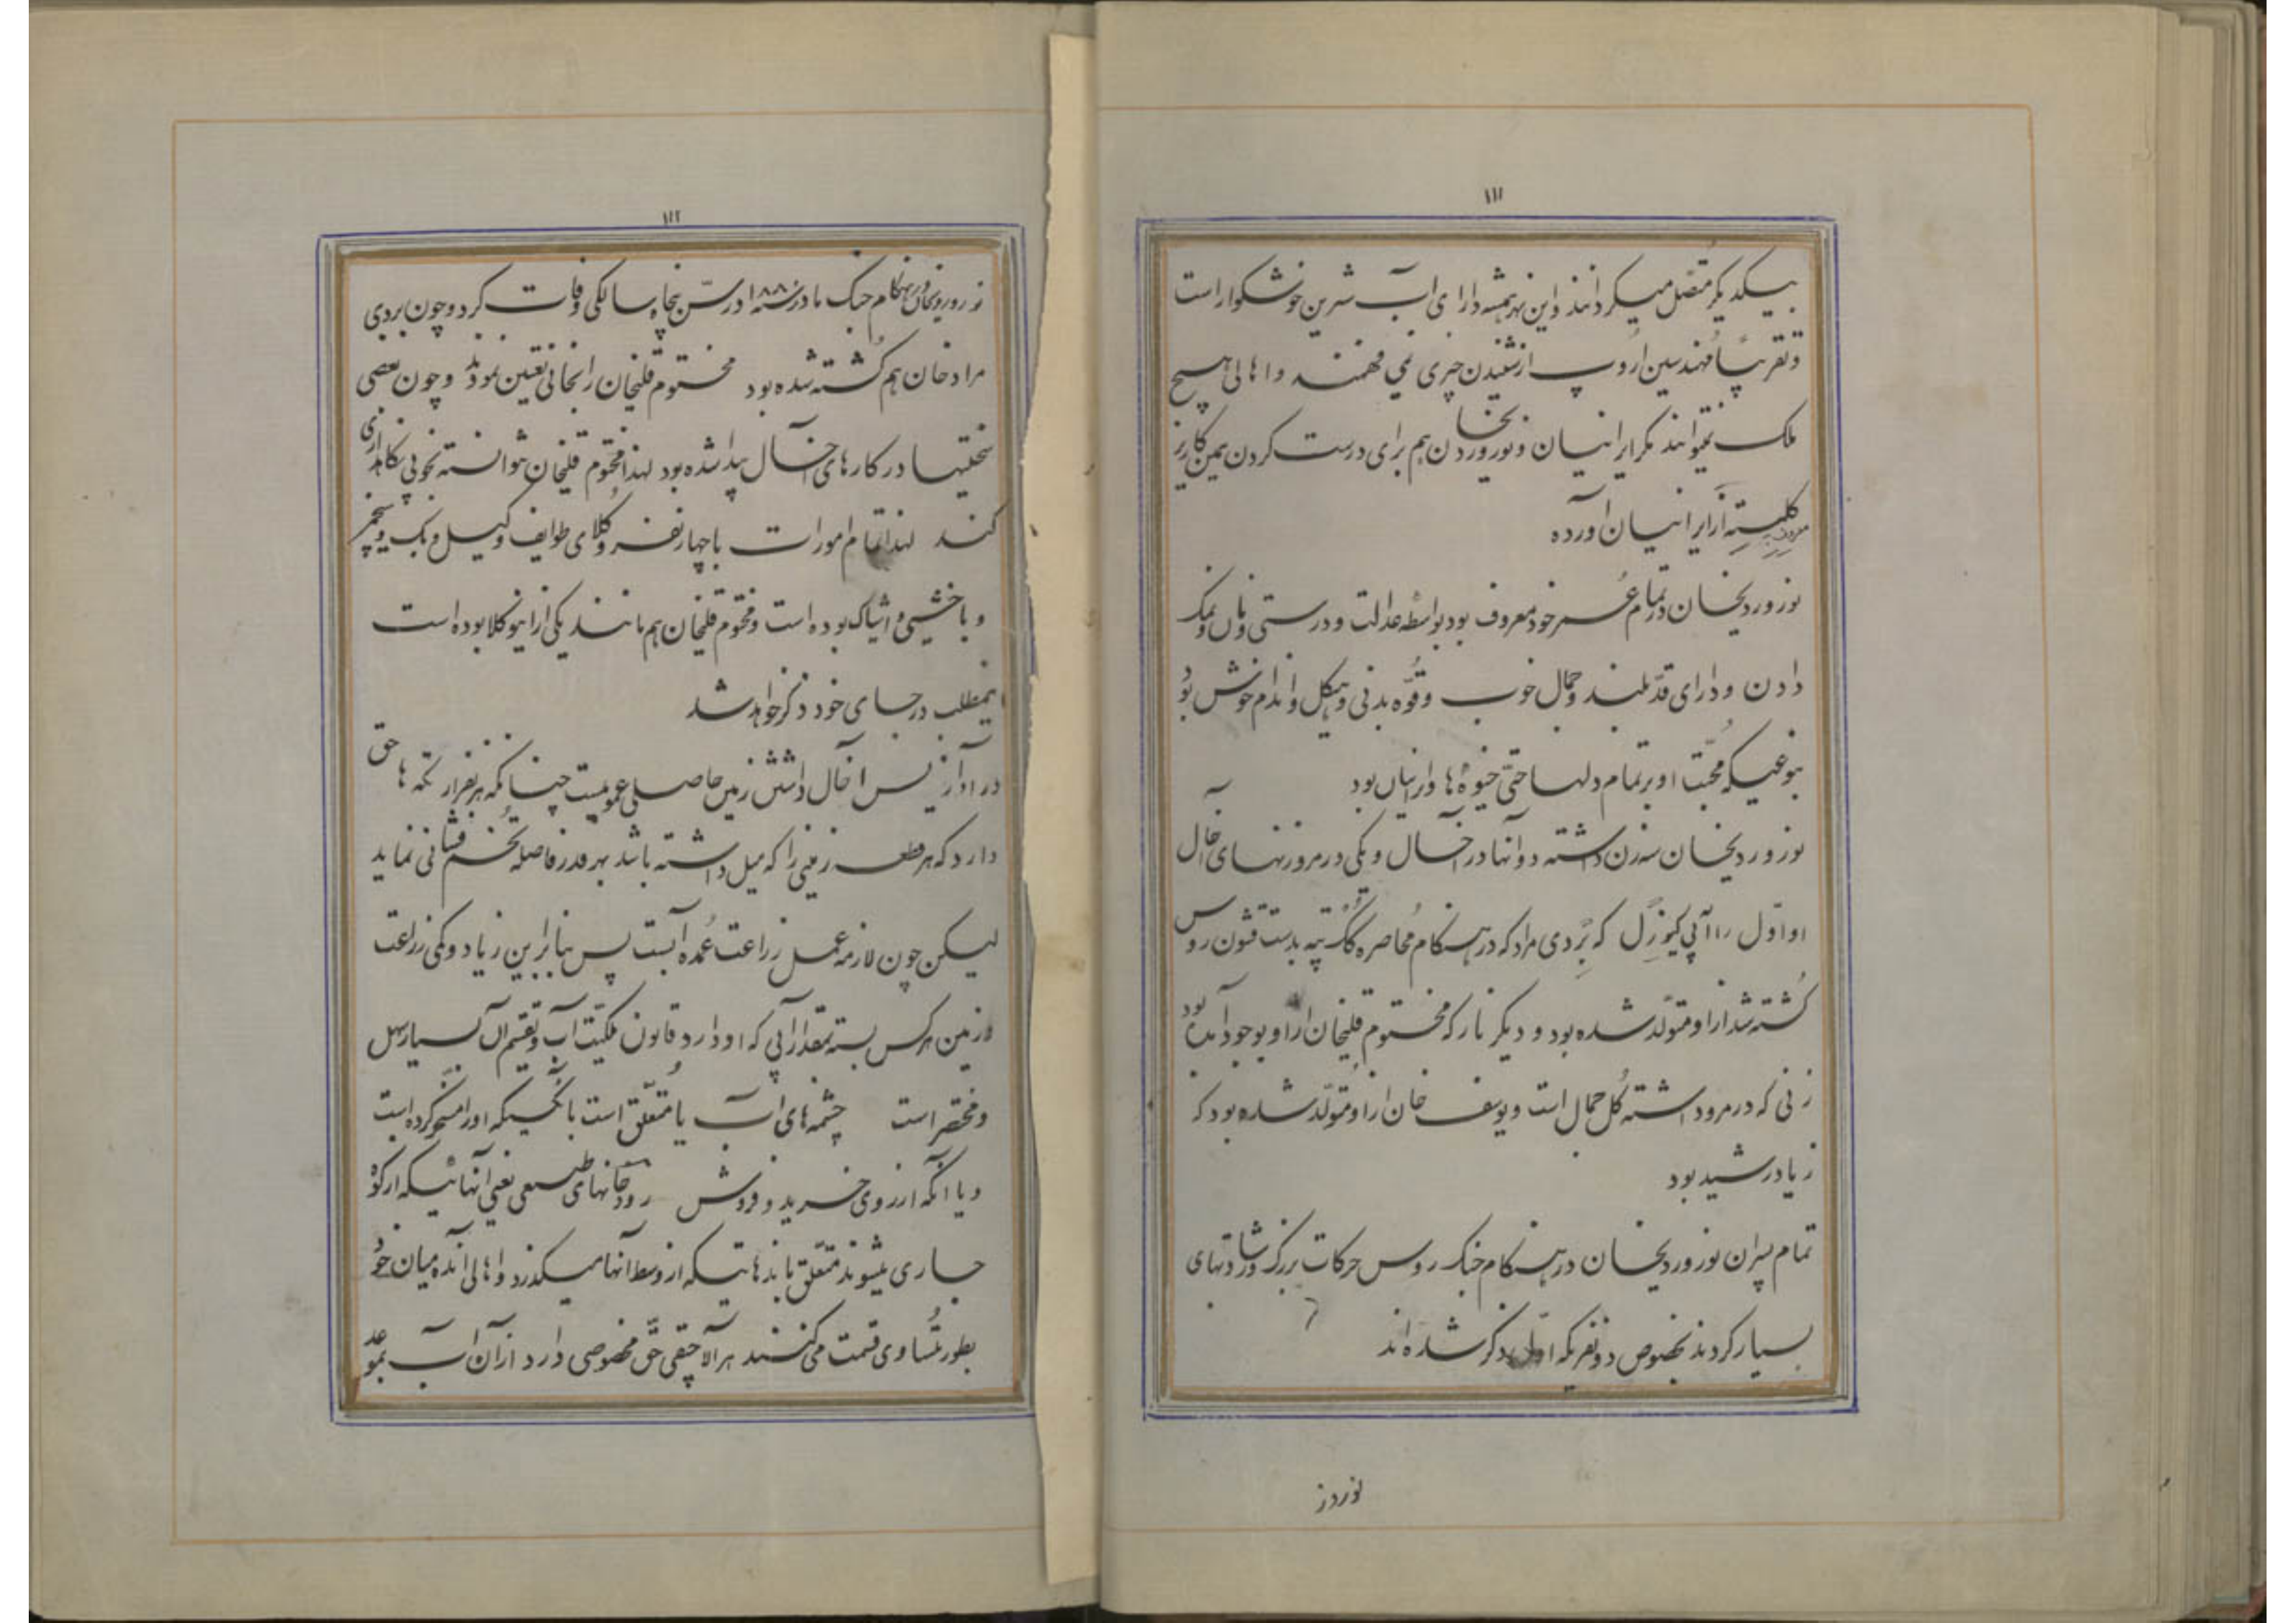 ۱۱۱
بیکدیکر متصل میکردانند واین نهر همیشه دارای آب شیرین خوشکوار است
وتقریباً مهندسین اروپ ازشنیدن چیزی نمی فهمند واهالی هیچ
ملک نمیتوانند مکر ایرانیان ونوروردیخان هم برای درست کردن همین کاریز
آزایرانیان آورده
نوروردیخان درتمام عمر خود معروف بود بواسطه عدالت ودرستی ونان ونمک
دادن ودارای قد بلند وجمال خوب وقوّه بدنی وهیکل واندام خوش بود
بنوعیکه محبّت او برتمام دلها حتی خیوه ها وایرانیان بود
نوروردیخان سه زن داشته دوآنها در آخال ویکی درمرو زنهای آخال
او اوّل که بردی مراد که درهنکام محاصره کک تپه بدست قشون روس
کشته شد ازاو متولّد شده بود ودیکر نازکه مختوم قلیخان ازاو بوجود آمده بود
زنی که درمرو داشته کل جمال است ویوسف خان ازاو متولّد شده بود که
زیاد رشید بود
تمام پسران نوروردیخان درهنکام جنک روس حرکات بزرک ورشادتهای
بسیار کردند بخصوص دونفریکه اوّل ذکر شده اند
نوردز
۱۱۲
نوروردیخان درهنکام جنک ما درسنه ۱۸۸۰ درسنّ پنجاه سالکی وفات کرد وچون بردی
مراد خان هم کشته شده بود مختوم قلیخان را بخانی تعیین نمودند وچون بعضی
سختیها در کارهای آخال پیدا شده بود لهذا مختوم قلیخان نتوانسته بخوبی نکاهداری
کند لهذا تمام امورات باچهار نفر وکلای طوایف وکیل وبک
وباخشی واتیاک بوده است ومختوم قلیخان هم مانند یکی ازاین وکلا بوده است
اینمطلب درجای خود ذکر خواهد شد
در آخال داشتن زمین حاصلی عمومیست چنانکه هرنفر از تکه ها حق
دارد که هرقطعه زمینی را که میل داشته باشد بهرقدر فاصله تخم فشانی نماید
لیکن چون لازمه عمل زراعت عمده آبست پس بنابراین زیاد وکمی زراعت
وزمین هرکس بسته بمقدار آبی که او دارد قانون ملکیّت آب وتقسیم آن بسیار سهل
ومختصر است چشمه های آب یا متعلّق است بآنکسیکه اورا مسخّر کرده است
ویا آنکه ازروی خرید وفروش رودخانهای طبیعی یعنی آنهائیکه ازکوه
جاری میشوند متعلّق بآن دهاتیکه ازوسط آنها میکذرد واهالی آن ده میان خود
بطور تساوی قسمت می کنند هرآلاچقی حقّ مخصوصی دارد ازآن آب